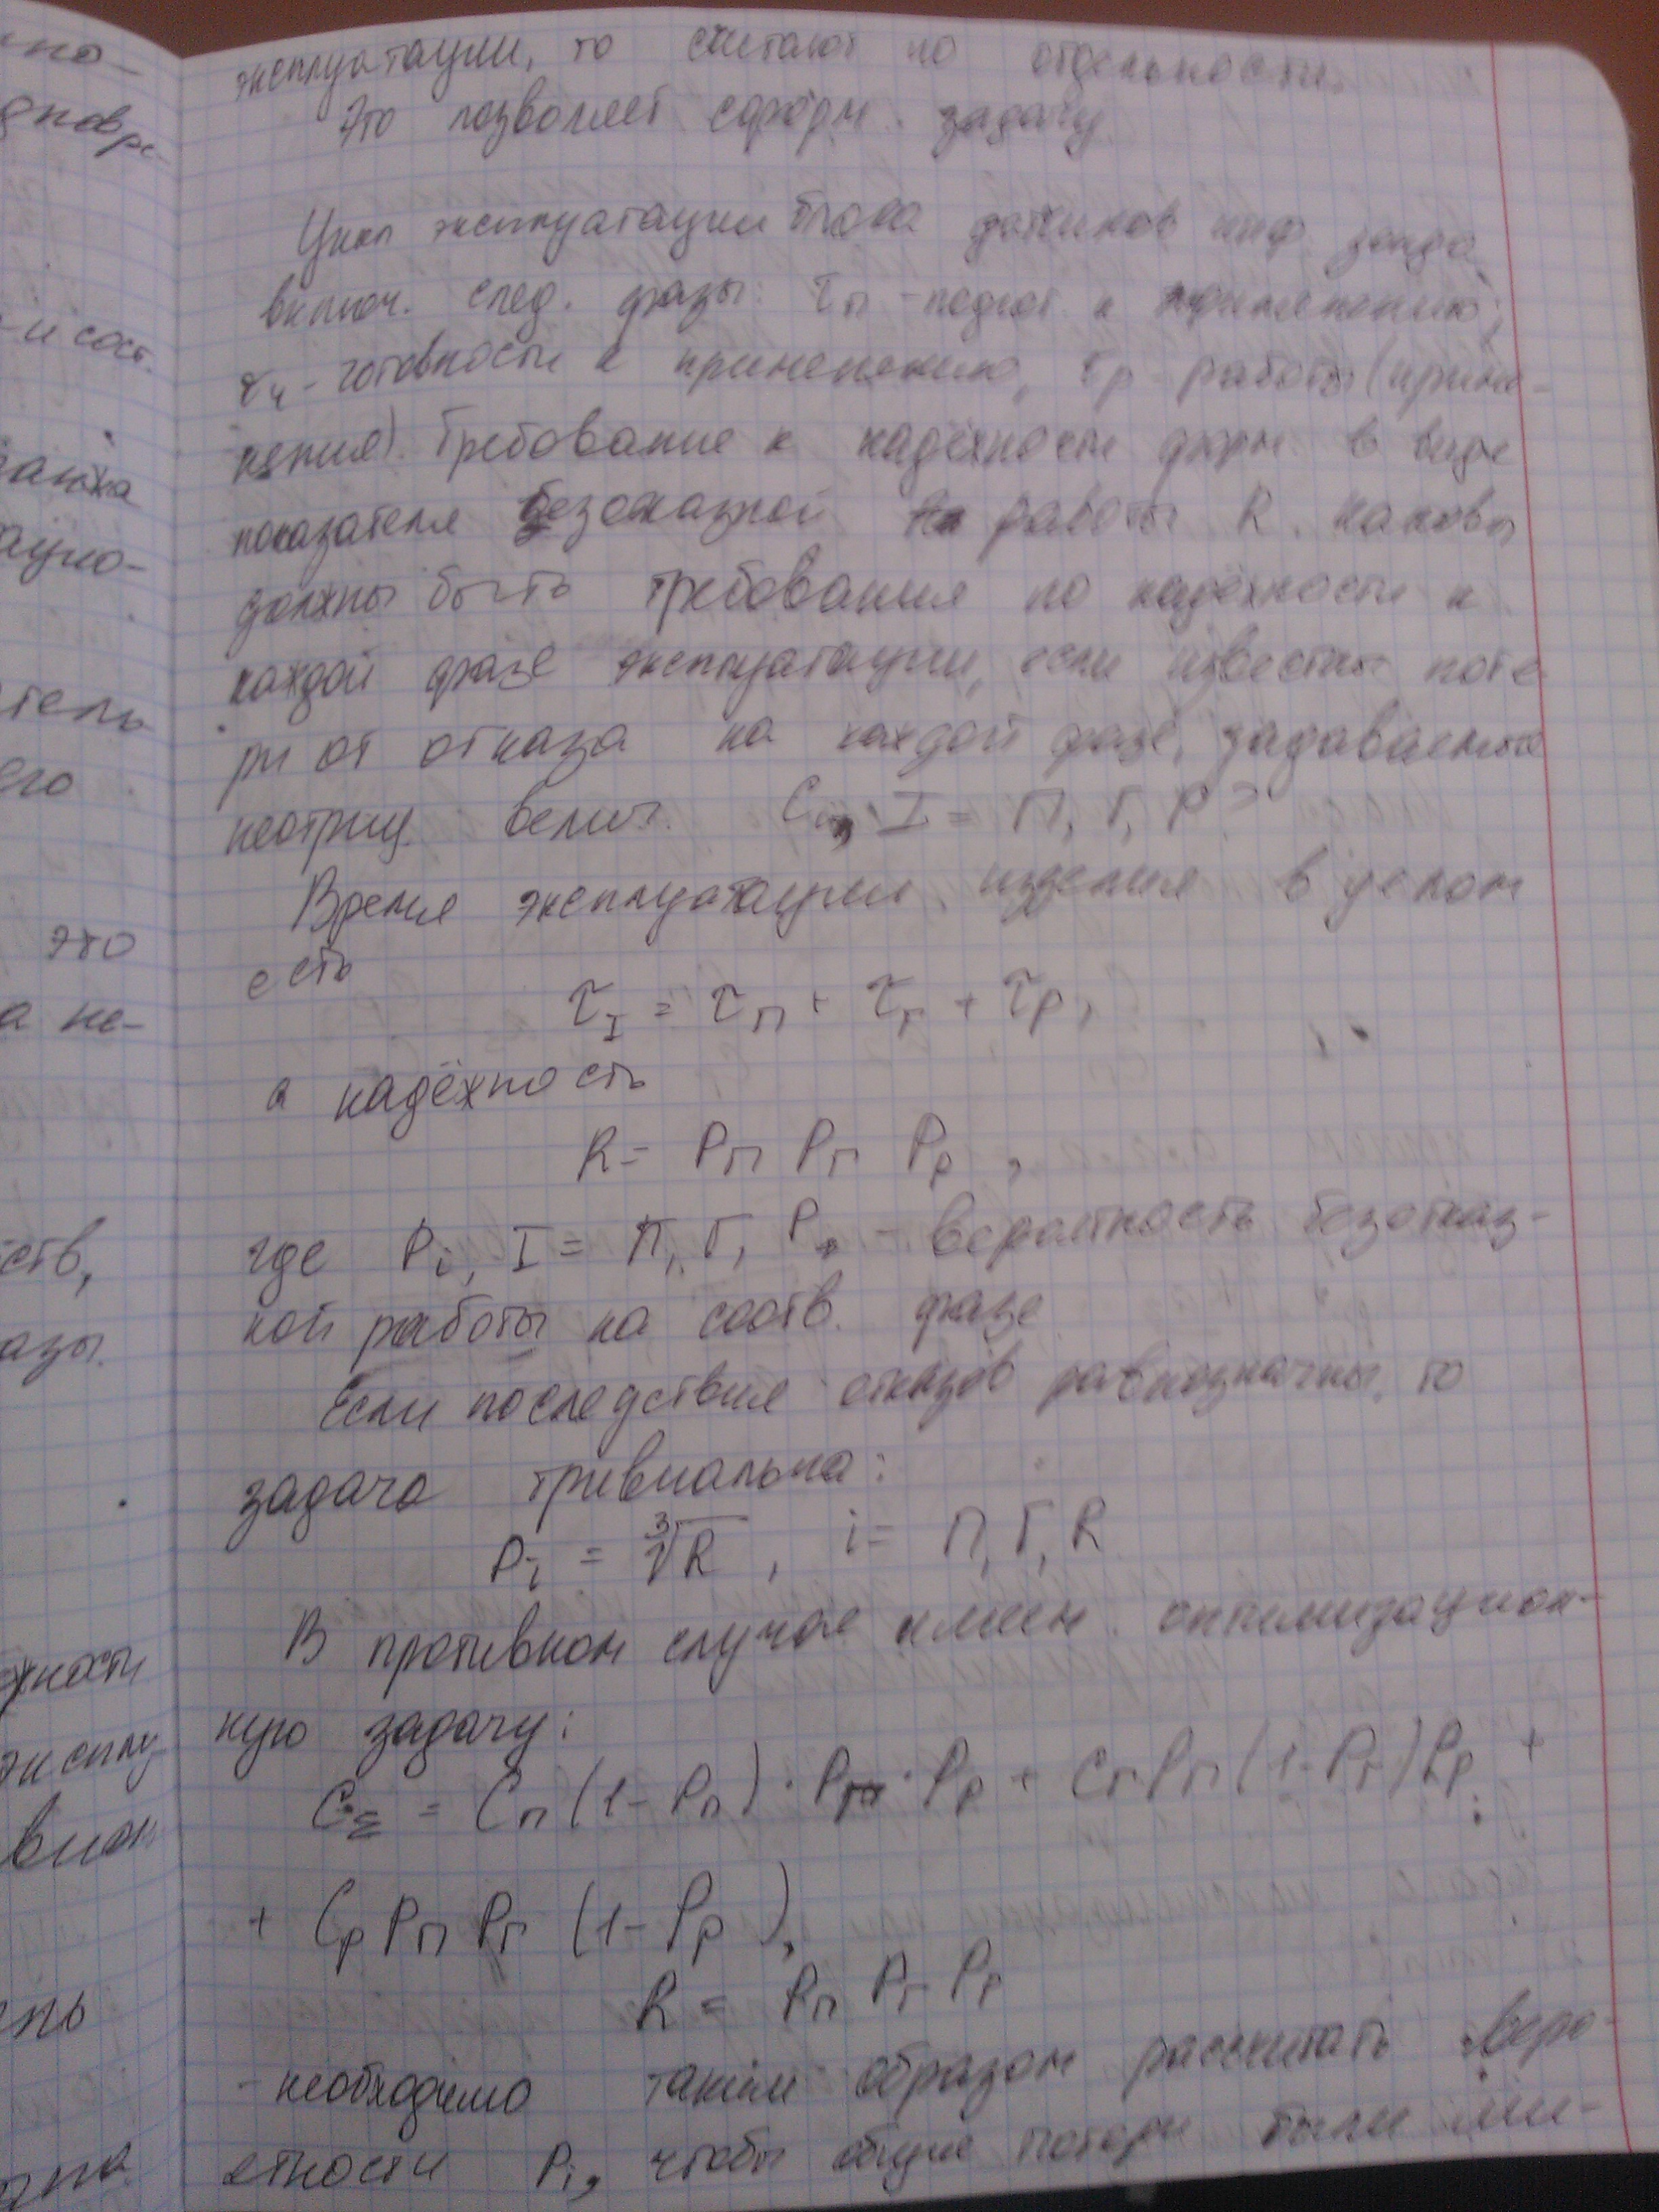 эксплуатации, то считают по отдельности.
Это позволяет сформ. задачу
Цикл эксплуатации блока датчиков инф. зонда
включ. след. фазы: τп - подгот к применению;
τч - готовности к применению, τр - работы (приме-
нения). Требование к надёжности форм. в виде
показателя безотказной работы R. Каковы
должны быть требования по надёжности к
каждой фазе эксплуатации, если известны поте
ри от отказа на каждой фазе, задаваемые
неотриц. велич. Ci, I = П, Г, Р ?
Время эксплуатации изделия в целом
есть
τI = τп + τг + τр,
а надёжность
R = Pп Pп Pр ,
где Pi, I = П, Г, Р. - вероятность безотказ-
ной работы на соотв. фазе
Если последствия отказов равнозначны, то
задача тривиальна:
Pi = ∛R , i = П, Г, R
В противном случае имеем. оптимизацион-
ную задачу:
CΣ = Cп (1 - Pп) · Pг · Pр + CгPп (1 - Pг) Pр +
+ Cр Pп Pг (1 - Pр),
R = Pп Pг Pр
- необходимо таким образом рассчитать веро-
ятности Pi, чтобы общие потери были ми-
но-
дновре-
и сост.
ацио-
тель
его
это
а не-
ств,
азы.
эксплу